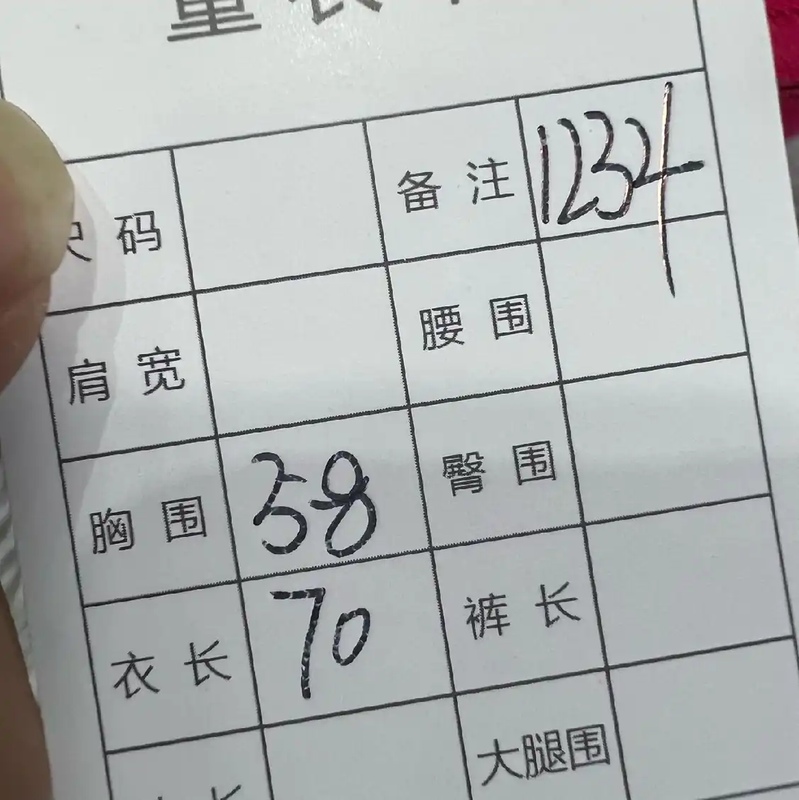 尺码 备注 1234
肩宽 腰围
胸围 58 臀围
衣长 70 裤长
长 大腿围